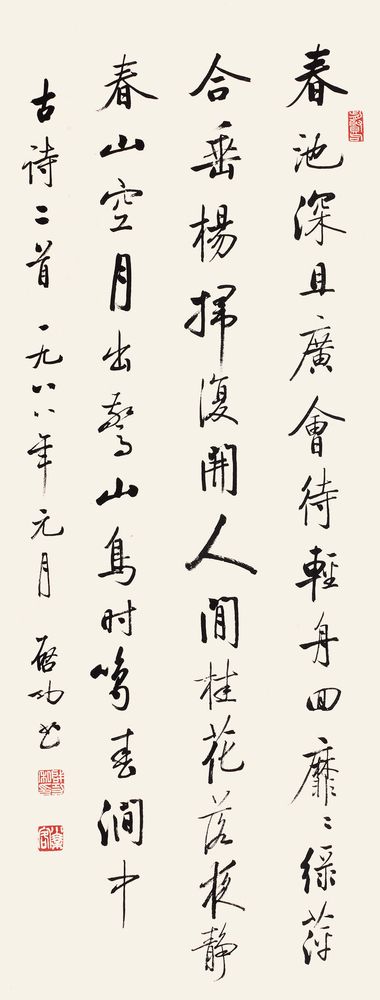 春池深且廣會待輕舟回靡〻綠萍
合垂楊掃復開人間桂花落夜靜
春山空月出驚山鳥时鳴春澗中
古詩二首一九八八年元月啓功书